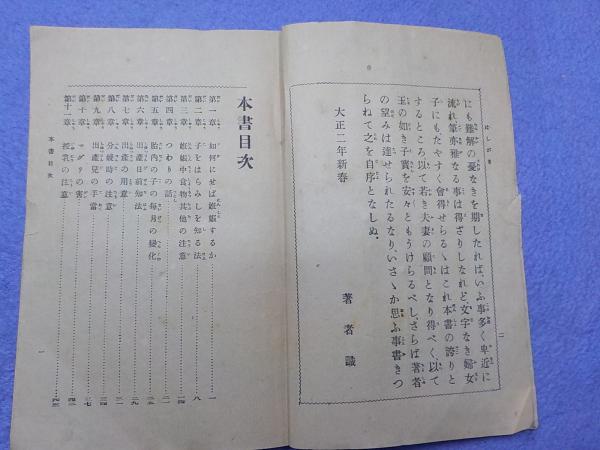 はしがき
二
にも難解の憂なきを期したれば、いふ事多く卑近に
流れ筆亦雅なる事は得ざりしなれど、文字なき婦女
子にもたやすく會得せらるゝはこれ本書の誇りと
するところ以て若き夫妻の顧問となり得べく、以て
玉の如き子寳を安々ともうけらるべし、さらば著者
の望みは達せられたるなり、いさゝか思ふ事書きつ
らねて之を自序となしぬ。
大正二年新春
著者識
本書目次
第一章 如何にせば姙娠するか 一
第二章 子をはらみしを知る法 八
第三章 姙娠中食物其他の注意 一四
第四章 つわりの話 二一
第五章 胎内の子の毎月の變化 二五
第六章 出產日前知法 二九
第七章 出產の用意 三一
第八章 分娩時の注意 三四
第九章 出產兒の手當 三七
第十章 マグリの害 四二
第十一章 授乳の注意 四三
本書目次
一